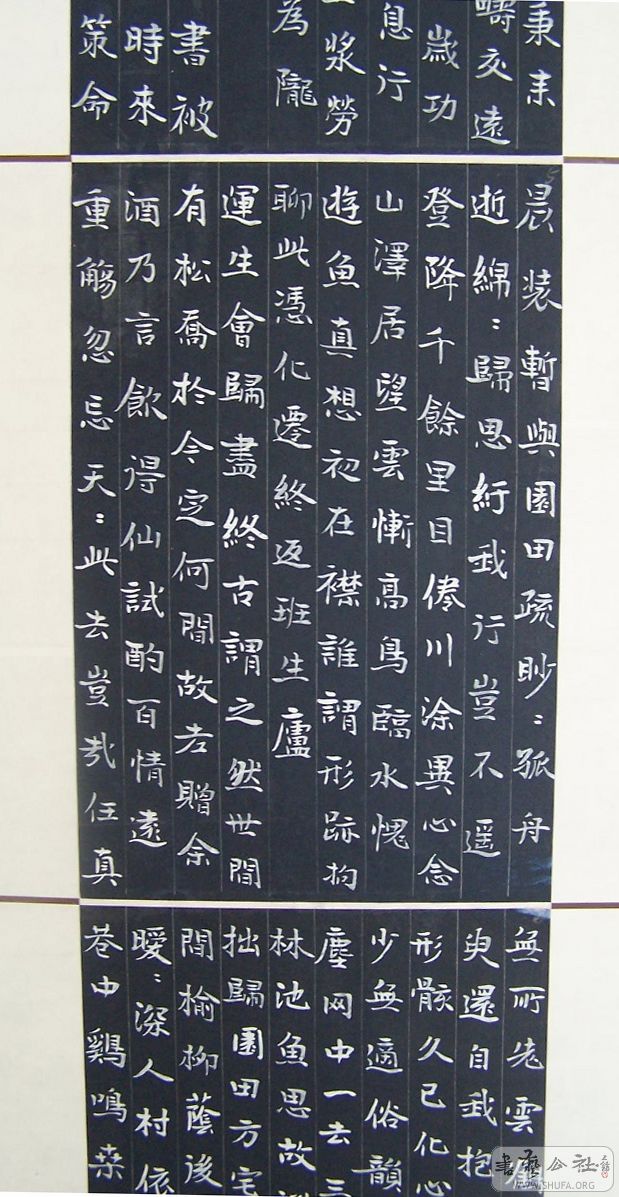 秉耒
疇交遠
歲功
息行
漿勞
為隴
書被
時來
策命
晨装暫與園田疏眇:孤舟
逝綿:歸思紆我行豈不遥
登降千餘里目倦川涂異心念
山澤居望雲慚高鳥臨水愧
遊魚真想初在襟誰謂形跡拘
聊此憑化遷終返班生廬
運生會歸盡終古謂之然世間
有松喬於今定何間故老贈余
酒乃言飲得仙試酌百情遠
重觴忽忘天:此去豈哉任真
無所老雲
臾還自我抱
形骸久已化心
少無適俗韻
塵网中一去三
林池魚思故
拙歸園田方宅
間榆柳蔭後
曖:深人村依
巷中鷄鳴桑
書藝公社
WWW.SHUFA.ORG